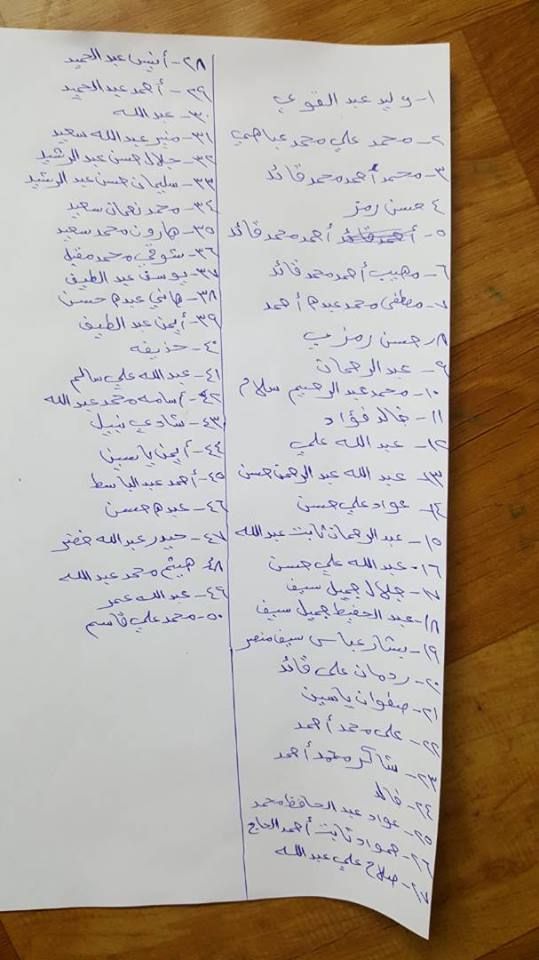 ١- وليد عبد القوي
٢- محمد علي محمد عباصي
٣- محمد أحمد محمد قائد
٤ حسن رمز
٥- أحمد محمد قائد
٦- مهيب أحمد محمد قائد
٧- مصطفى محمد عبده أحمد
٨- حسن رمزي
٩- عبد الرحمان
١٠- محمد عبد الرحيم سلام
١١- خالد فؤاد
١٢- عبد الله علي
١٣- عبد الله عبد الرحمن حسن
١٤- عواد علي حسن
١٥- عبد الرحمان ثابت عبد الله
١٦- عبد الله علي حسن
١٧- جلال جميل سيف
١٨- عبد الحفيظ جميل سيف
١٩- بشار عباس سيف منصر
٢٠- ردمان علي قائد
٢١- صفوان ياسين
٢٢- علي محمد أحمد
٢٣- شاكر محمد أحمد
٢٤-
٢٥- عواد عبد الحافظ محمد
٢٦- ثابت أحمد الحاج
٢٧- صلاح علي عبد الله
٢٨- أنيس عبد الحميد
٢٩- أحمد عبد الحميد
٣٠- عبد الله
٣١- منير عبد الله سعيد
٣٢- جلال حسن عبد الرشيد
٣٣- سليمان حسن عبد الرشيد
٣٤- محمد نعمان سعيد
٣٥- هارون محمد سعيد
٣٦- شوقي محمد مقبل
٣٧- يوسف عبد الطيف
٣٨- هاني عبده حسن
٣٩- أيمن عبد الطيف
٤٠- حذيفه
٤١- عبد الله علي سالم
٤٢- أسامه محمد عبد الله
٤٣- شادي نبيل
٤٤- أيمن ياسين
٤٥- أحمد عبد الباسط
٤٦- عبده حسن
٤٧- حيدر عبد الله خضر
٤٨- هيثم محمد عبد الله
٤٩- عبد الله عمر
٥٠- محمد علي قاسم